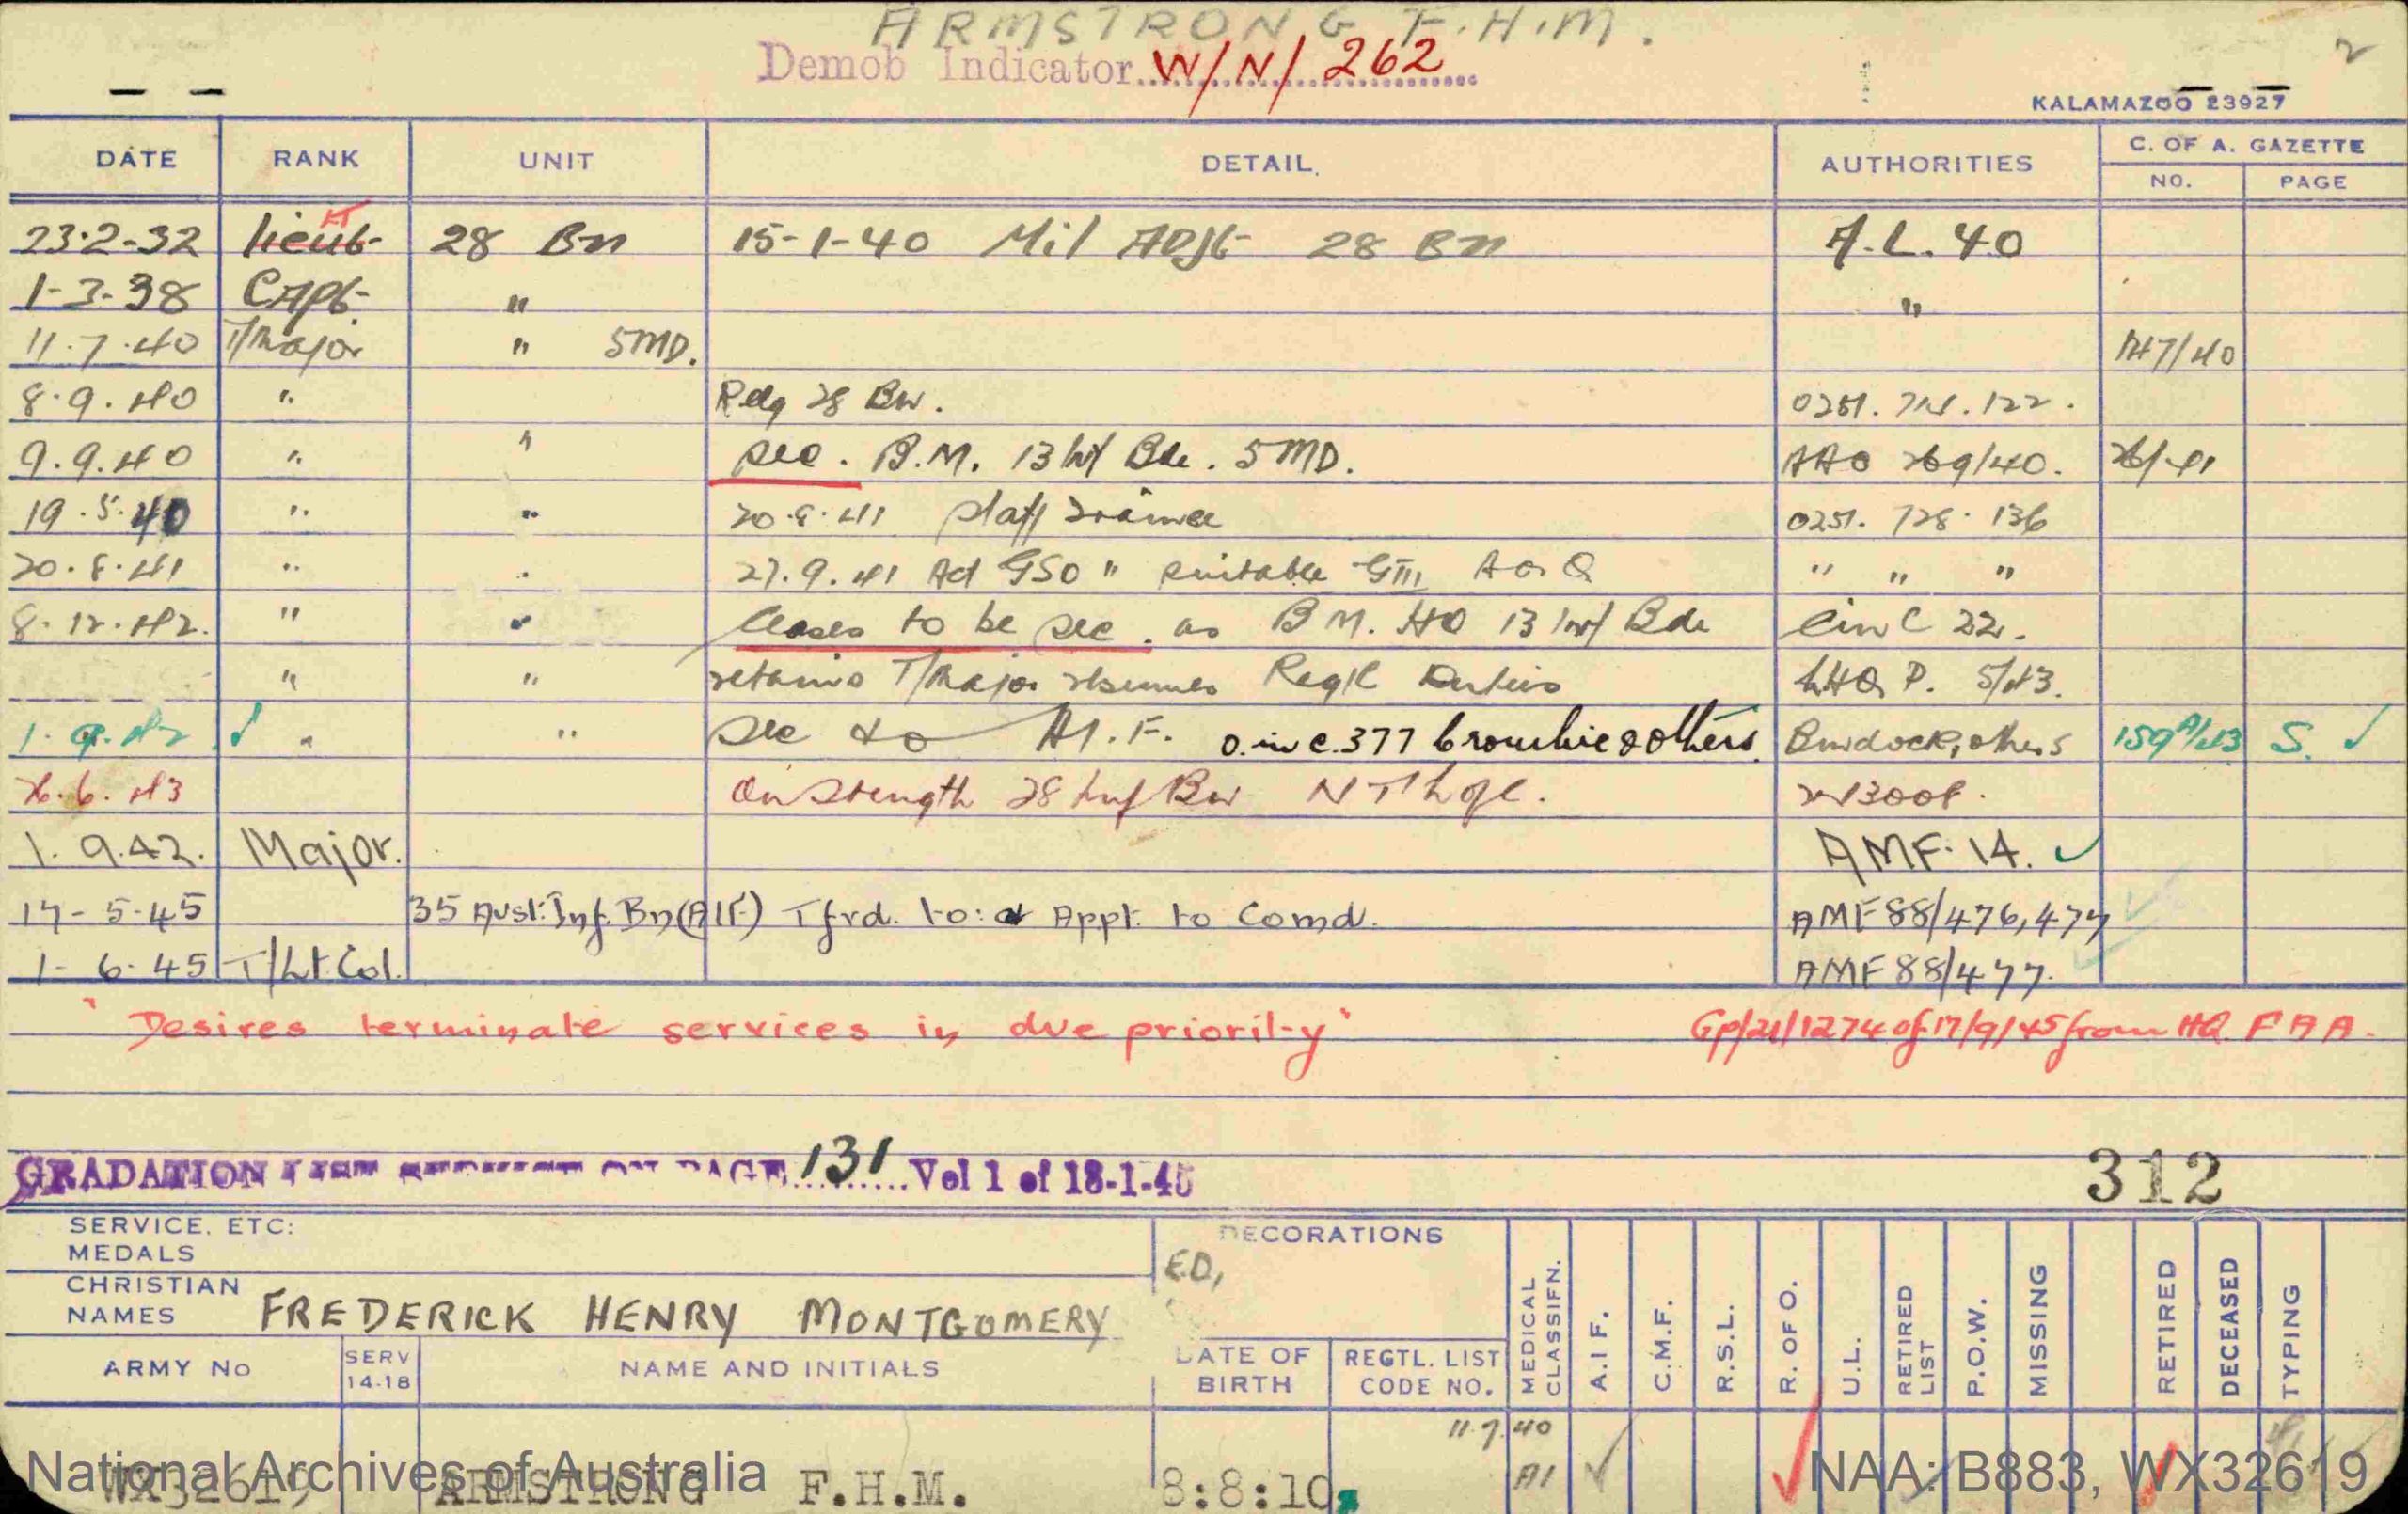 ARMSTRONG F.H.M.
2
Demob Indicator W/N/262
KALAMAZOO 23927
DATE RANK UNIT DETAIL. AUTHORITIES C. OF A. GAZETTE
NO. PAGE
23-2-32 Lieut- 28 Bn 15-1-40 Mil Adjt 28 Bn A.L. 40
1-3-38 Capt. " "
11.7.40 T/Major " 5MD. 147/40
8.9.40 " 28 Bn.
9.9.40 " " sec. B.M. 13 Inf Bde. 5MD. AAO 269/40. 26/41
19.5.40 " " 20.8.41 Staff Trainee 0251. 728. 136
20.8.41 " " 27.9.41 Ad GSO " suitable GIII A or Q " " "
8.12.42. " " Ceases to be sec. as BM. HQ 13 Inf Bde CinC 22.
" " retains T/Major resumes Regtl Duties LHQ P. 5/43.
1.9.42 " " Sec to A.I.F. O. in C. 377 & others Burdock, others 159A/43 S.
26.6.43 On Strength 28 Inf Bn
1.9.42. Major. AMF. 14.
17-5-45 35 Aust: Inf. Bn (AIF) Tfrd. to: & Appt. to Comd. AMF 88/476,477
1-6-45 T/Lt Col. AMF 88/477.
"Desires terminate services in due priority" Gp/21/1274 of 17/9/45 from HQ. FAA.
GRADATION LIST ON PAGE 131 Vol 1 of 18-1-45
312
SERVICE, ETC:
MEDALS
DECORATIONS
E.D,
CHRISTIAN NAMES FREDERICK HENRY MONTGOMERY
ARMY No SERV 14-18 NAME AND INITIALS DATE OF BIRTH REGTL. LIST CODE NO. MEDICAL CLASSIFN. A.I F. C.M.F. R.S.L. R. OF O. U.L. RETIRED LIST P.O.W. MISSING RETIRED DECEASED TYPING
11.7.40
WX32619 ARMSTRONG F.H.M. 8:8:10 A1
National Archives of Australia NAA: B883, WX32619